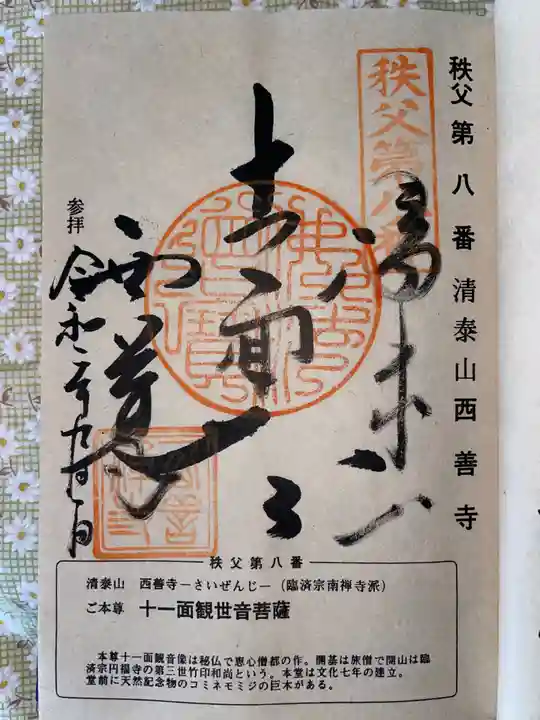 秩父第八番 清泰山 西善寺
秩父第八番
十一面
参拝
令和二年九月
秩父第八番
清泰山 西善寺―さいぜんじ―(臨済宗南禅寺派)
ご本尊 十一面観世音菩薩
本尊十一面観音像は秘仏で恵心僧都の作。開基は旅僧で開山は臨
済宗円福寺の第三世竹印和尚という。本堂は文化七年の建立。
堂前に天然記念物のコミネモミジの巨木がある。